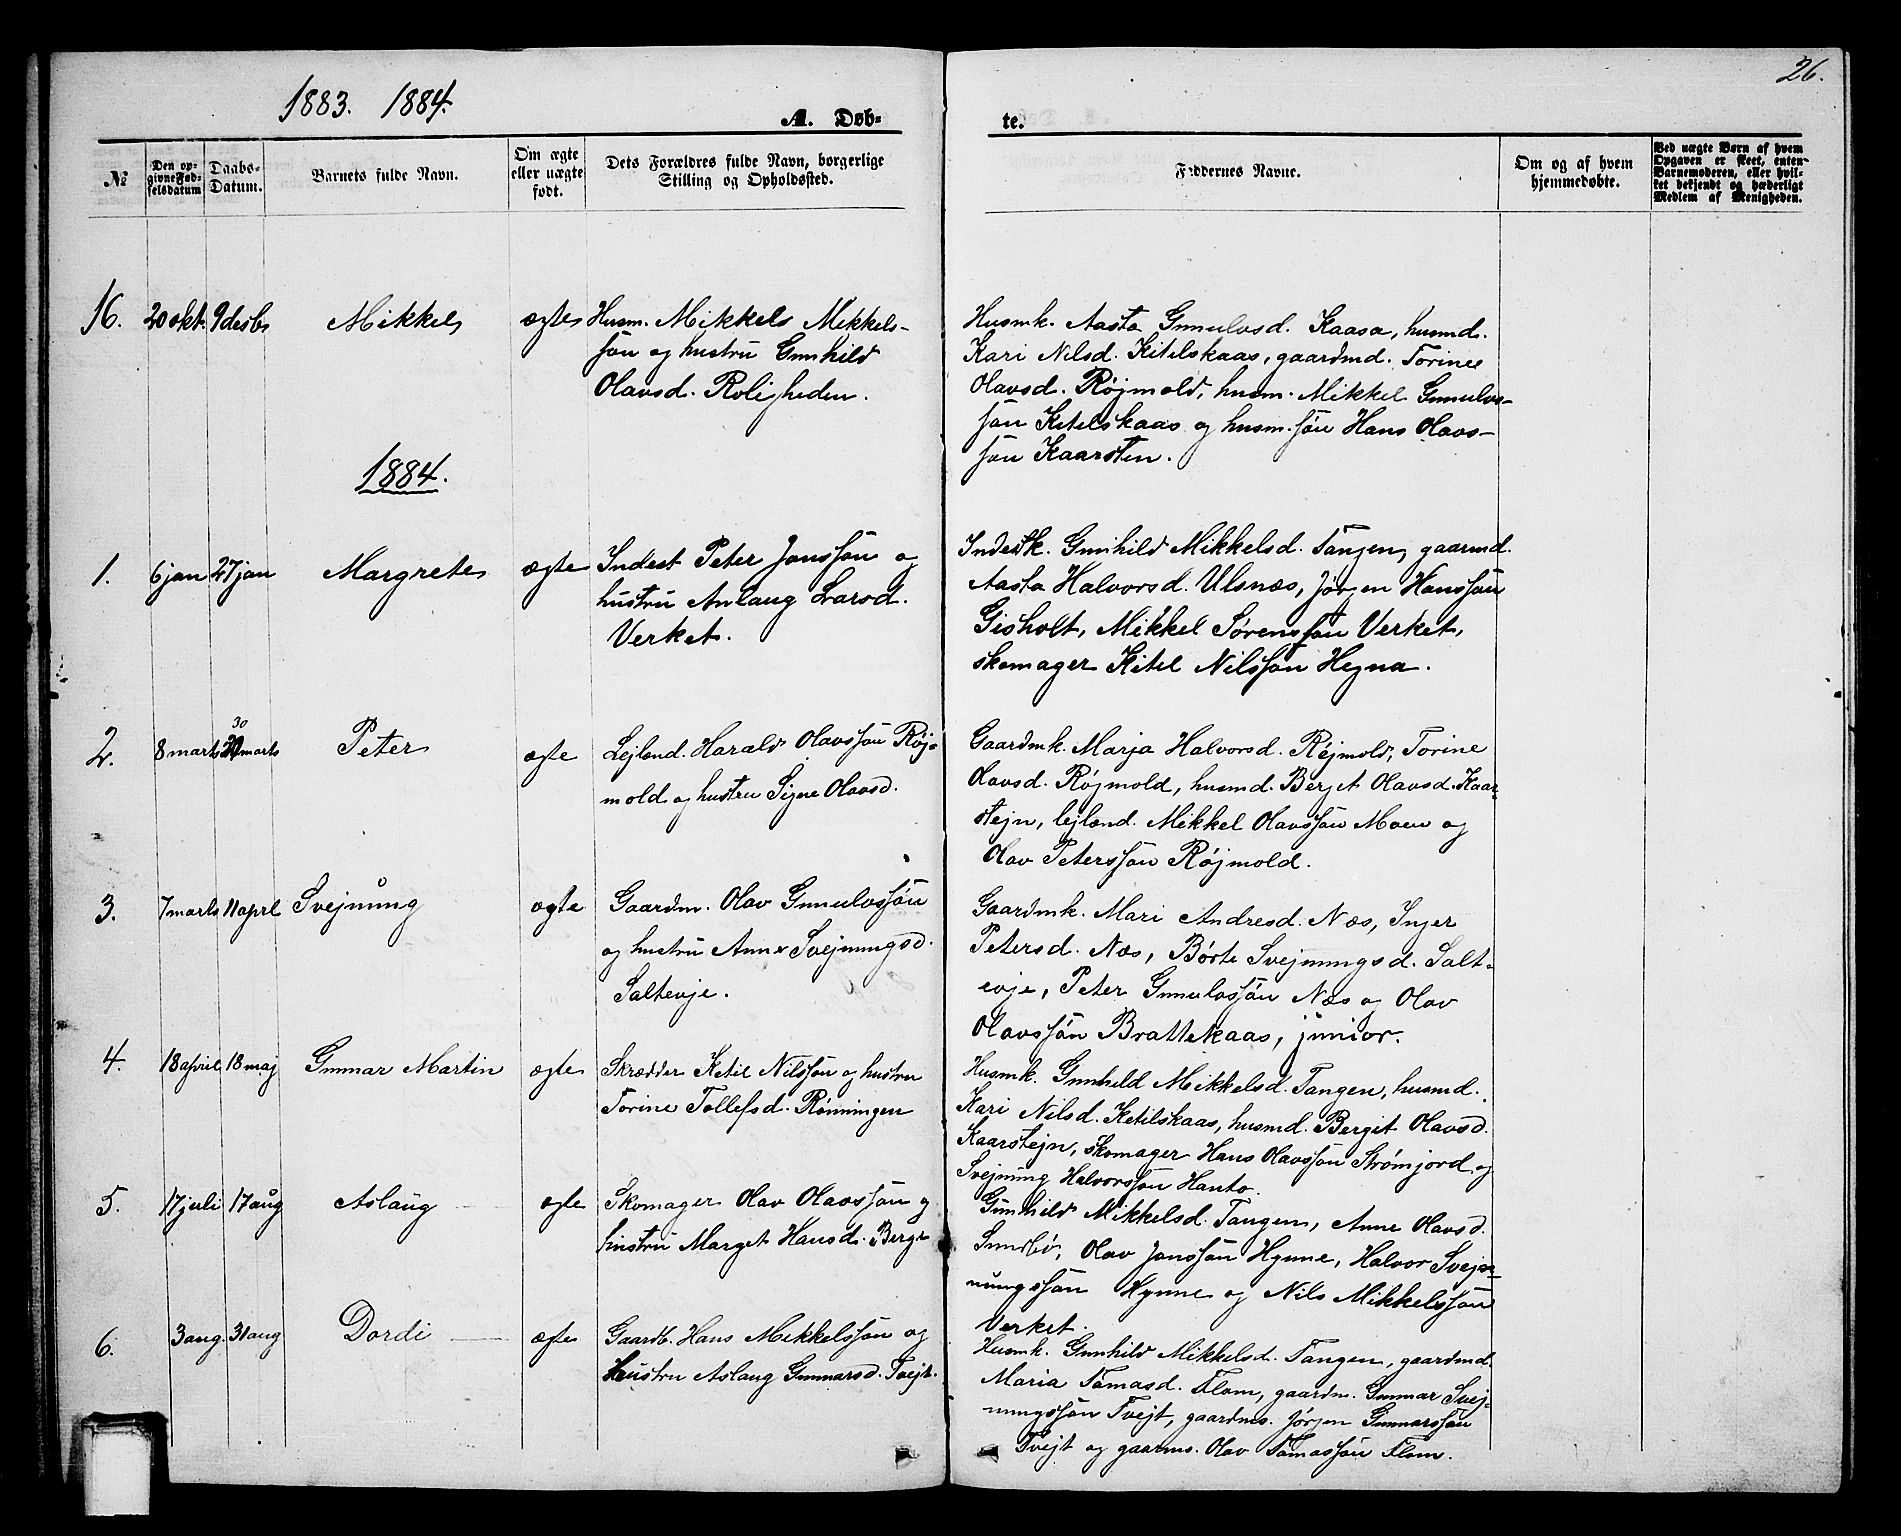 26.
1883. 1884.
A. Døb-
te.
№
Den op-
givne Fød-
selsdatum
Daabs-
Datum.
Barnets fulde Navn.
Om ægte
eller uægte
født.
Dets Forældres fulde Navn, borgerlige
Stilling og Opholdssted.
Faddernes Navne.
Om og af hvem
hjemmedøbte.
Ved uægte Børn af hvem
Opgaven er skeet, enten
Barnemoderen, eller hvil-
ket bekjendt og hæderligt
Medlem af Menigheden.
16. 20 okt. 9 desbr Mikkel ægte
Husm. Mikkels Mikkels-
søn og hustru Gunhild
Olavsd. Roligheden.
Husmk. Aasta Gunulvsd. Kaasa, husmd.
Kari Nilsd. Kitilskaas, gaardmd. Torine
Olavsd. Røjmold, husm. Mikkel Gunulvs-
søn Ketilskaas og husm. søn Hans Olavs-
søn Kaarsten.
1884.
1. 6 jan 27 jan Margrete ægte
Inderst Peter Jonssøn og
hustru Anlaug Larsd.
Verket.
Inderstk. Gunhild Mikkelsd. Tangen, gaarmd.
Aasta Halvorsd. Ulsnæs, Jørgen Hanssøn
Gisholt, Mikkel Sørenssøn Verket,
skomager Kitil Nilssøn Hegna.
2. 8 marts 30 marts Peter ægte
Lejlend. Harald Olavssøn Røj-
mold og hustru Signe Olavsd.
Gaardmk. Marja Halvorsd. Røjmold, Torine
Olavsd. Røjmold, husmd. Berjit Olavsd. Kaar-
stejn, lejlænd. Mikkel Olavssøn Moen og
Olav Peterssøn Røjmold.
3. 7 marts 11 aprl Svejnung ægte
Gaardm. Olav Gunulvssøn
og hustru Anne Svejnungsd.
Saltevje.
Gaardmk. Mari Andresd. Næs, Injer
Petersd. Næs, Børte Svejnungsd. Salt-
evje, Peter Gunulvssøn Næs og Olav
Olavssøn Brattekaas, junior.
4. 18 april 18 maj Gunnar Martin ægte
Skrædder Ketil Nilssøn og hustru
Torine Tollefsd. Rønningen
Husmk. Gunhild Mikkelsd. Tangen, husmd.
Kari Nilsd. Ketilskaas, husmd. Bergit Olavsd.
Kaarstejn, skomager Hans Olavssøn Strømjord og
Svejnung Halvorssøn Hanto.
5. 17 juli 17 aug Aslaug ægte
Skomager Olav Olavssøn og
hustru Marget Hansd. Berge
Gunhild Mikkelsd. Tangen, Anne Olavsd.
Sundbø, Olav Jonssøn Hynne, Halvor Svej-
nungssøn Hynne og Nils Mikkelssøn
Verket.
6. 3 aug. 31 aug Dordi ægte
Gaardb. Hans Mikkelssøn og
Hustru Aslaug Gunnarsd. Tvejt.
Husmk. Gunhild Mikkelsd. Tangen, gaardmd.
Maria Tomasd. Flom, gaardm. Gunnar Svej-
nungssøn Tvejt, gaardms. Jørgen Gunnarssøn
Tvejt og gaarms. Olav Tomassøn Flom.